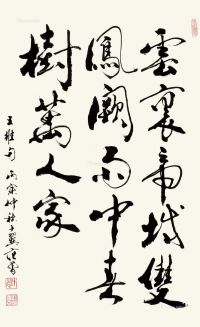 雲裏帝城雙
鳳闕雨中春
樹萬人家
王維句 丙寅仲秋十翼范曾